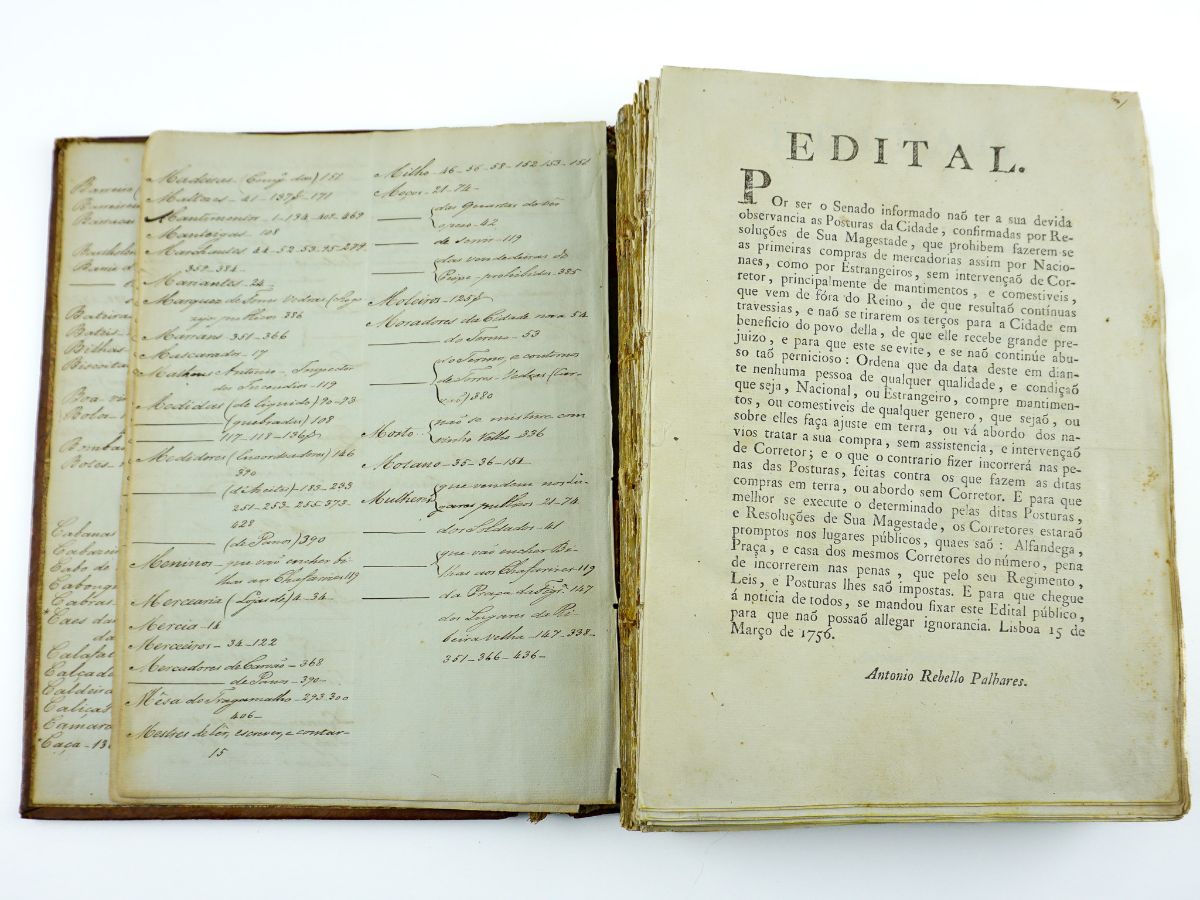 Madeiras (Conç. das) 151
Mulheres - 41 - 137 - 171
Mantimentos - 1 - 194 - 408 - 469
Manteigas - 108
Marchantes 44 - 52 - 53 - 95 - 279
352 - 384
Manantes - 24
Marquez de Torres Vedras
386
Marians - 351 - 366
Mascarados - 17
Matheus Antonio - Inspector
dos Incendios - 119
Medidas (de liquidos) 90 - 93
(quebradas) 108
117 - 118 - 136
Medidores (Encordoadores) 146
390
(d'Azeites) - 183 - 293
251 - 253 - 255 - 373
428
(de Panos) 390
Meninos - que vão encher bi-
lhas aos Chafarizes 119
Mercearia (Lojas de) 4 - 34
Mercia - 14
Merceeiros - 34 - 122
Mercadores de Carvão - 368
de Panos - 390
Mêsa do Tragamalho - 293 - 300
406
Mestres de lêr, escrever, e contar
15
Milho - 46 - 56 - 58 - 152 - 153 - 151
Moços - 21 - 74
das Quartas do
42
de servir - 119
das vendedeiras de
Peixe prohibidos - 385
Moleiros - 125
Moradores da Cidade nova 54
do Termo - 53
do Termo, e contornos
de Torres Vedras
380
Mosto
não se misture com
vinho Velho - 336
Motano - 35 - 36 - 151
Mulheres
que vendem nos lu-
gares publicos - 21 - 74
dos Soldados - 41
que vão encher Bi-
lhas aos Chafarizes - 119
da Praça da Figª. - 147
dos Lugares da Ri-
beira velha - 147 - 338
351 - 366 - 436
Bilhas
Cabanas
Cabo de
Cabras
Caes das
Calçada
Caldeira
Caliças
Caça - 13
EDITAL.
POr ser o Senado informado naõ ter a sua devida
observancia as Posturas da Cidade, confirmadas por Re-
soluções de Sua Magestade, que prohibem fazerem-se
as primeiras compras de mercadorias assim por Nacio-
naes, como por Estrangeiros, sem intervençaõ de Cor-
retor, principalmente de mantimentos, e comestiveis,
que vem de fóra do Reino, de que resultaõ contínuas
travessias, e naõ se tirarem os terços para a Cidade em
beneficio do povo della, de que elle recebe grande pre-
juizo, e para que este se evite, e se naõ continúe abu-
so taõ pernicioso: Ordena que da data deste em dian-
te nenhuma pessoa de qualquer qualidade, e condiçaõ
que seja, Nacional, ou Estrangeiro, compre mantimen-
tos, ou comestiveis de qualquer genero, que sejaõ, ou
sobre elles faça ajuste em terra, ou vá abordo dos na-
vios tratar a sua compra, sem assistencia, e intervençaõ
de Corretor; e o que o contrario fizer incorrerá nas pe-
nas das Posturas, feitas contra os que fazem as ditas
compras em terra, ou abordo sem Corretor. E para que
melhor se execute o determinado pelas ditas Posturas,
e Resoluções de Sua Magestade, os Corretores estaraõ
promptos nos lugares públicos, quaes saõ: Alfandega,
Praça, e casa dos mesmos Corretores do número, pena
de incorrerem nas penas, que pelo seu Regimento,
Leis, e Posturas lhes saõ impostas. E para que chegue
á noticia de todos, se mandou fixar este Edital público,
para que naõ possaõ allegar ignorancia. Lisboa 15 de
Março de 1756.
Antonio Rebello Palhares.